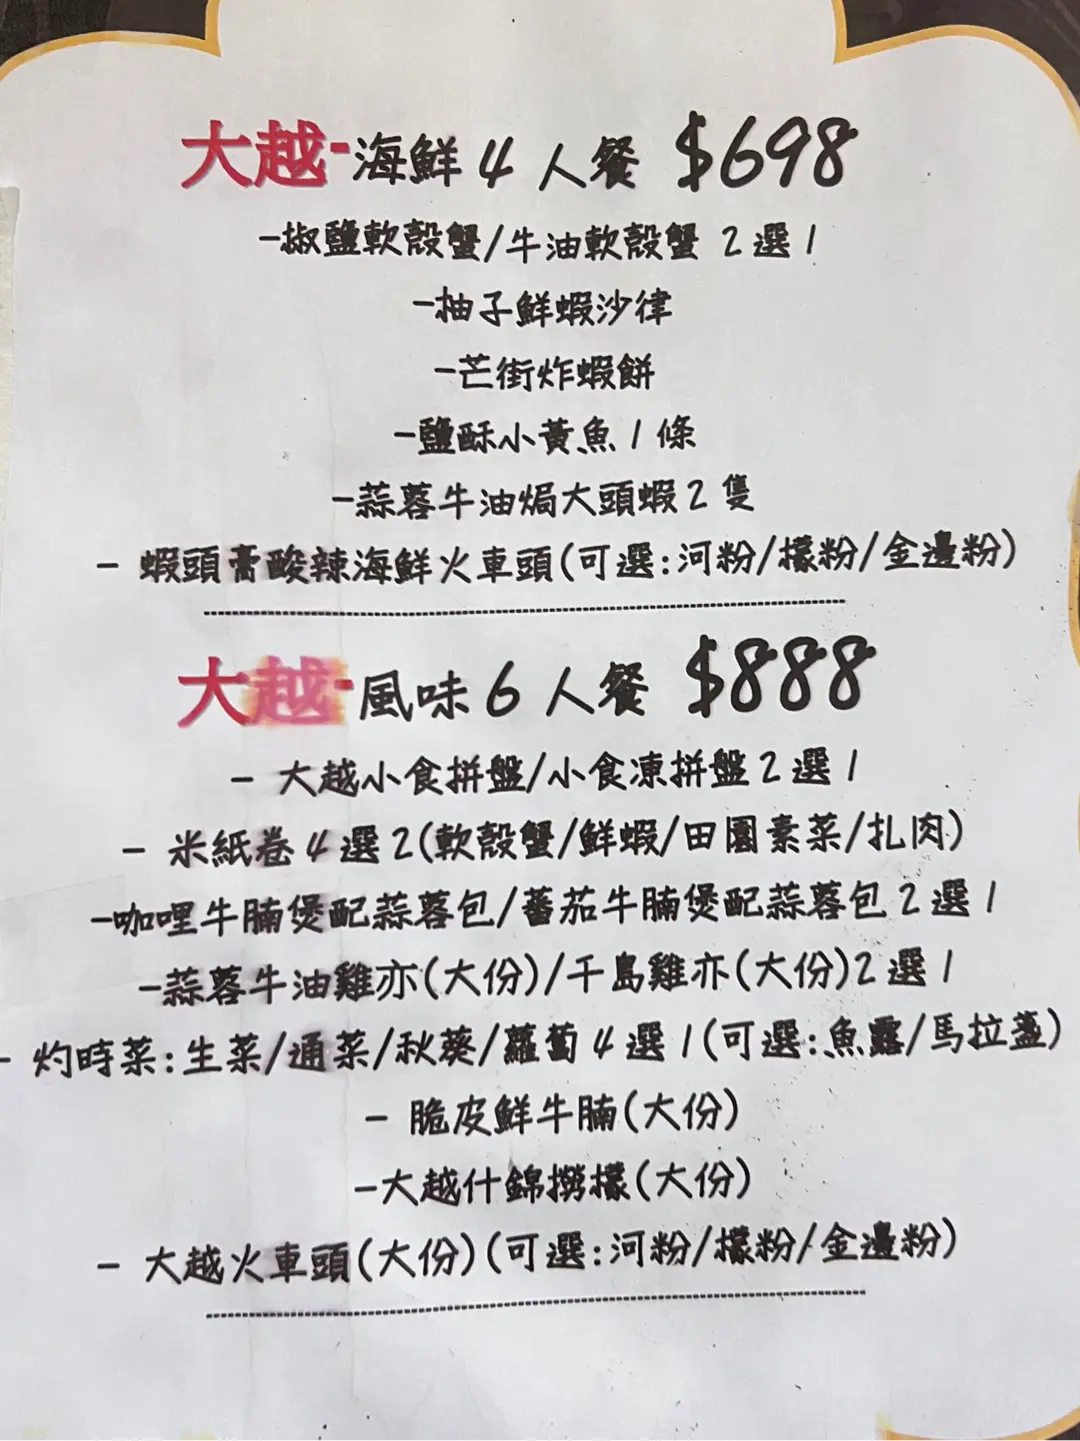 大越-海鮮4人餐 $698
-椒鹽軟殼蟹/牛油軟殼蟹 2選1
-柚子鮮蝦沙律
-芒街炸蝦餅
-鹽酥小黃魚1條
-蒜蓉牛油焗大頭蝦2隻
- 蝦頭膏酸辣海鮮火車頭(可選:河粉/檬粉/金邊粉)
大越-風味6人餐 $888
- 大越小食拼盤/小食凍拼盤2選1
- 米紙卷4選2(軟殼蟹/鮮蝦/田園素菜/扎肉)
-咖哩牛腩煲配蒜蓉包/蕃茄牛腩煲配蒜蓉包2選1
-蒜蓉牛油雞亦(大份)/千島雞亦(大份)2選1
- 灼時菜:生菜/通菜/秋葵/蘿蔔4選1(可選:魚露/馬拉盞)
- 脆皮鮮牛腩(大份)
-大越什錦撈檬(大份)
- 大越火車頭(大份)(可選:河粉/檬粉/金邊粉)